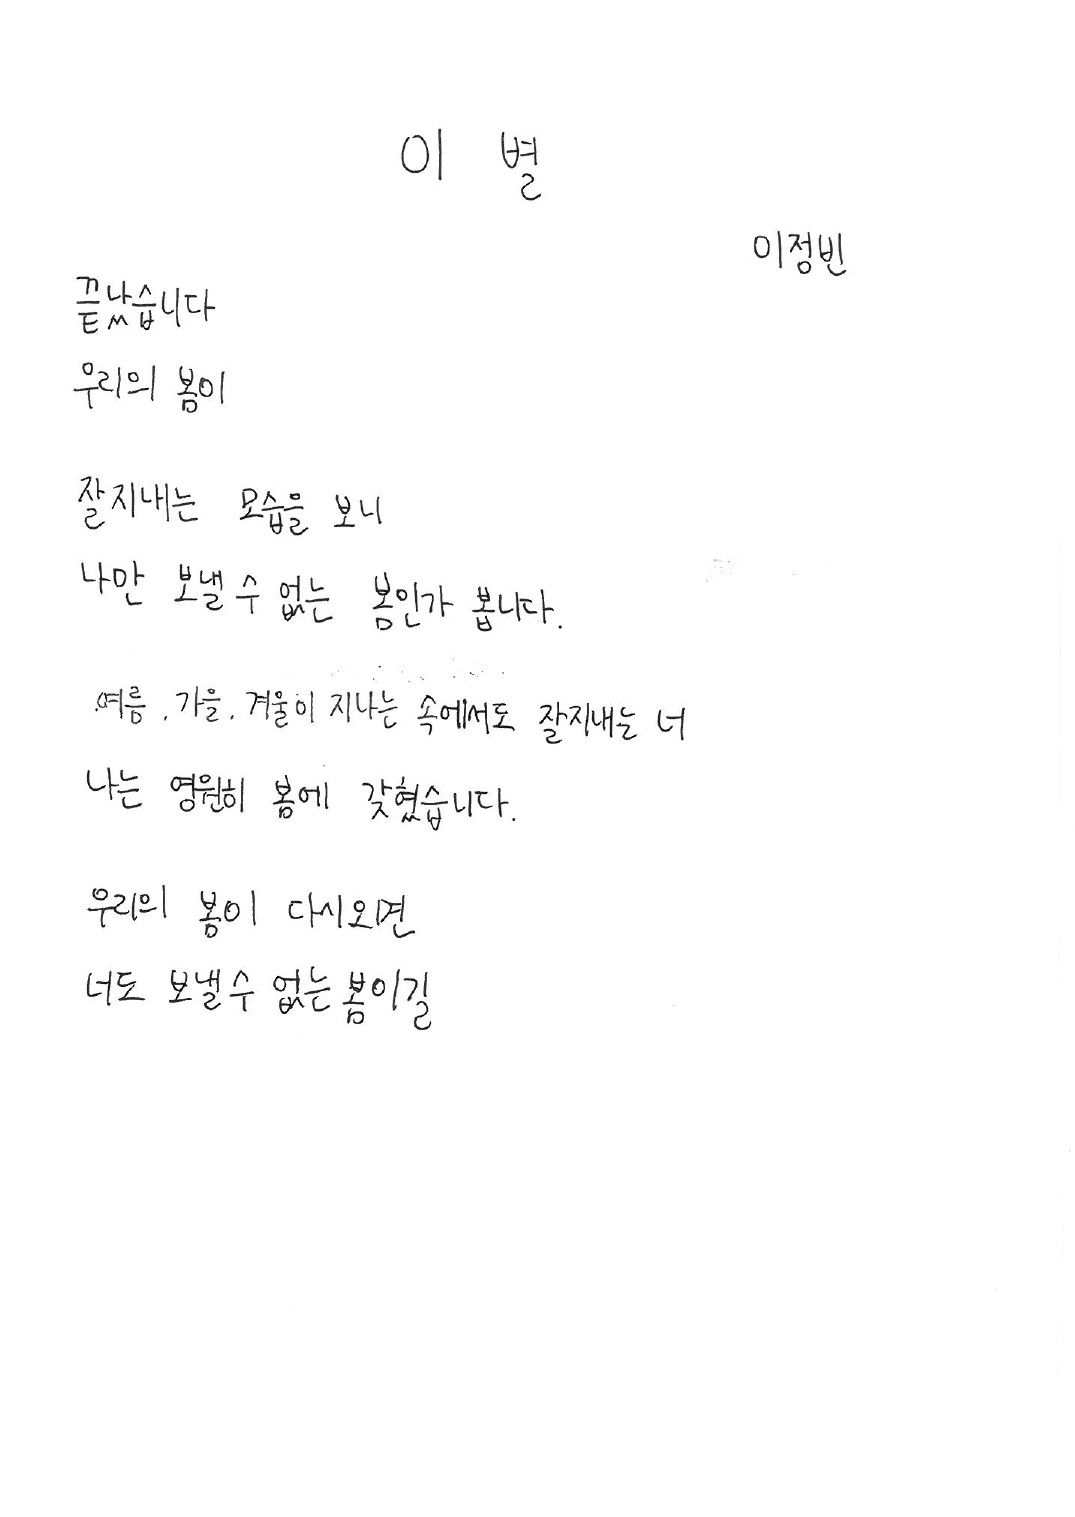 이 별
이정빈
끝났습니다
우리의 봄이
잘지내는 모습을 보니
나만 보낼 수 없는 봄인가 봅니다.
여름, 가을, 겨울이 지나는 속에서도 잘지내는 너
나는 영원히 봄에 갖혔습니다.
우리의 봄이 다시오면
너도 보낼수 없는 봄이길